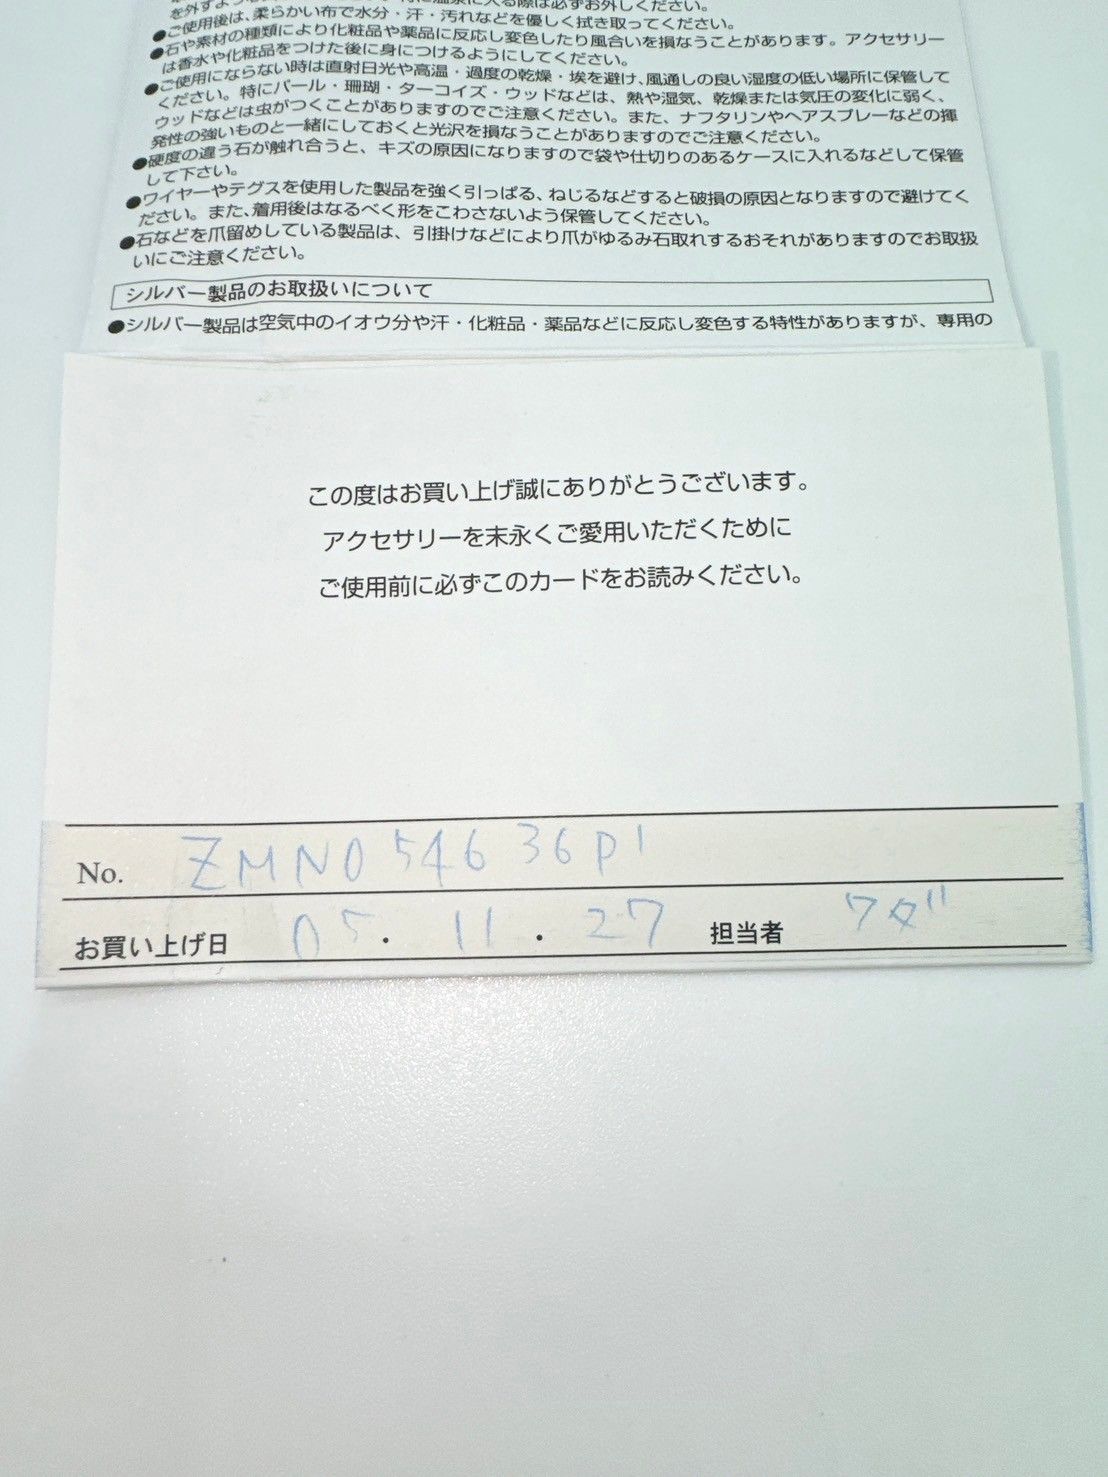 を外すよう
に入る際は必ずお外しください。
●ご使用後は、柔らかい布で水分・汗・汚れなどを優しく拭き取ってください。
●石や素材の種類により化粧品や薬品に反応し変色したり風合いを損なうことがあります。アクセサリー
は香水や化粧品をつけた後に身につけるようにしてください。
●ご使用にならない時は直射日光や高温・過度の乾燥・埃を避け、風通しの良い湿度の低い場所に保管して
ください。特にパール・珊瑚・ターコイズ・ウッドなどは、熱や湿気、乾燥または気圧の変化に弱く、
ウッドなどは虫がつくことがありますのでご注意ください。また、ナフタリンやヘアスプレーなどの揮
発性の強いものと一緒にしておくと光沢を損なうことがありますのでご注意ください。
●硬度の違う石が触れ合うと、キズの原因になりますので袋や仕切りのあるケースに入れるなどして保管
して下さい。
●ワイヤーやテグスを使用した製品を強く引っぱる、ねじるなどすると破損の原因となりますので避けてく
ださい。また、着用後はなるべく形をこわさないよう保管してください。
●石などを爪留めしている製品は、引掛けなどにより爪がゆるみ石取れするおそれがありますのでお取扱
いにご注意ください。
シルバー製品のお取扱いについて
●シルバー製品は空気中のイオウ分や汗・化粧品・薬品などに反応し変色する特性がありますが、専用の
この度はお買い上げ誠にありがとうございます。
アクセサリーを末永くご愛用いただくために
ご使用前に必ずこのカードをお読みください。
No. ZMN054636P1
お買い上げ日 05.11.27 担当者 ワダ